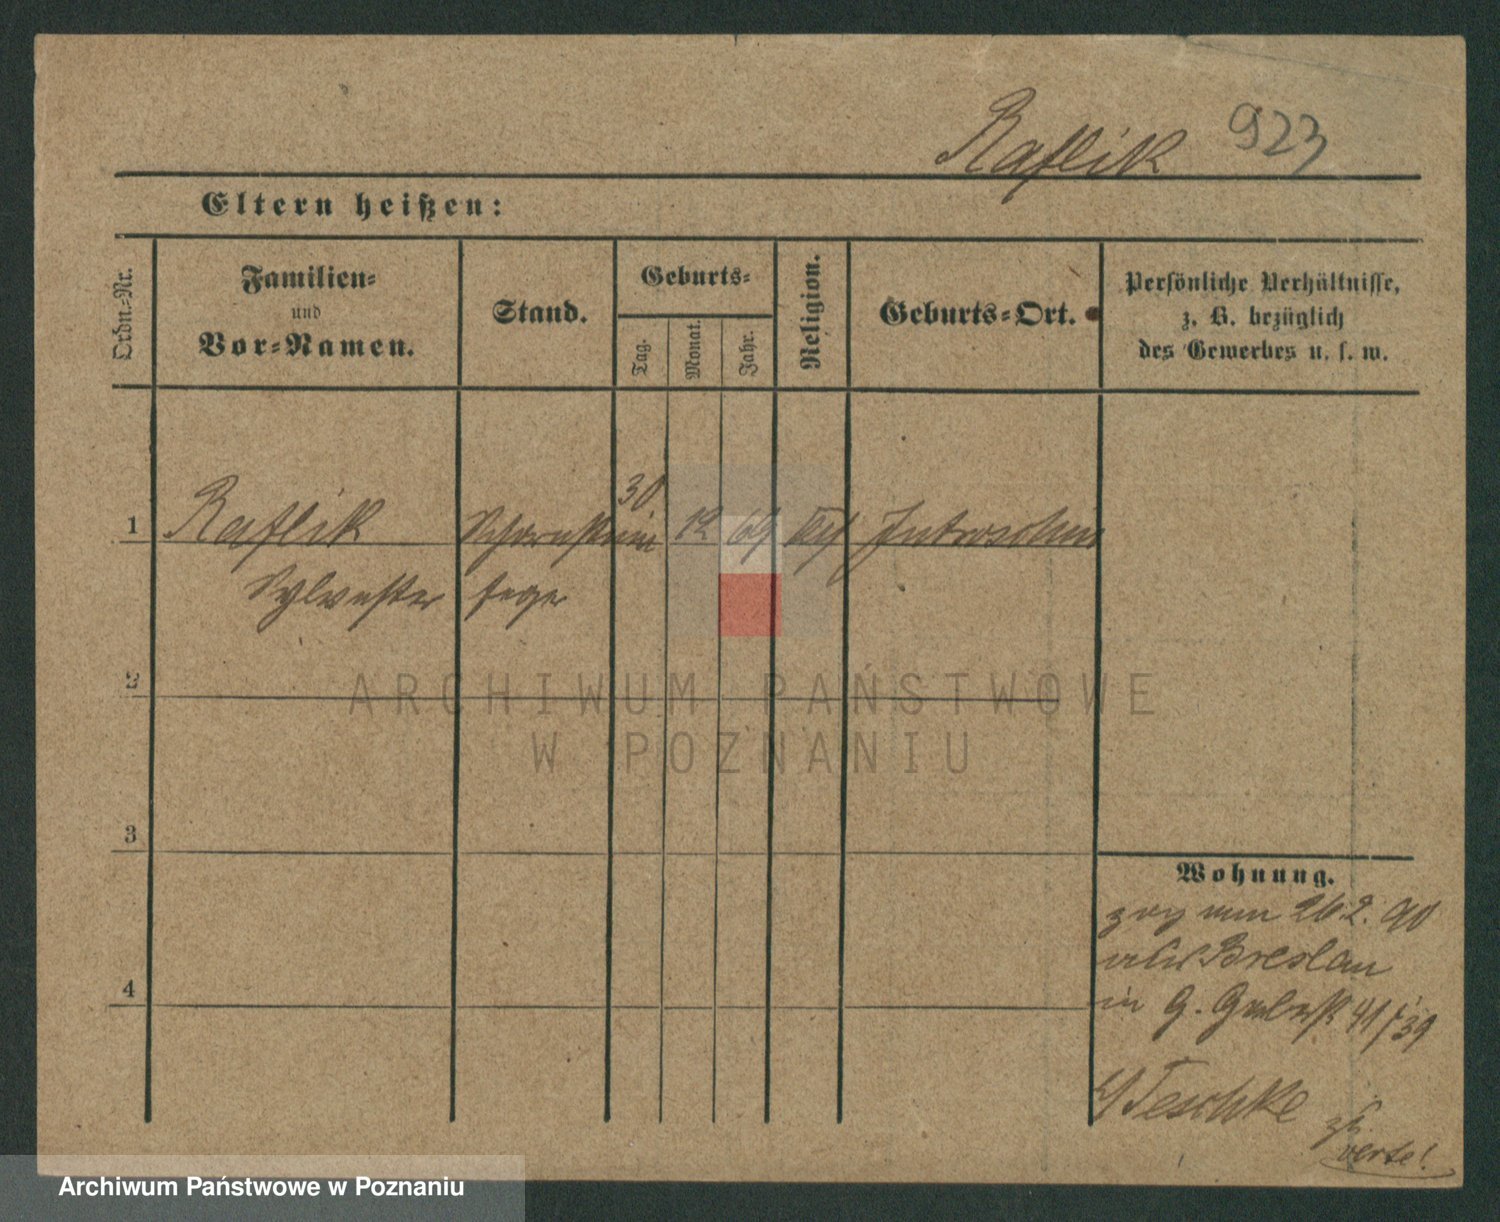 Raflik 923
Eltern heißen:
Ordn.-Nr.
Familien-
und
Vor-Namen.
Stand.
Geburts-
Tag.
Monat.
Jahr.
Religion.
Geburts-Ort.
Persönliche Verhältnisse,
z. B. bezüglich
des Gewerbes u. s. w.
30
1 Raflik Schornstein 12 69 kth Jutroschin
Sylvester feger
2
3
4
ARCHIWUM PAŃSTWOWE
W POZNANIU
Wohnung.
zog am 26.2. 90
aus Breslau
in G. Gerberstr 41/39
b/ Teschke
verte!
Archiwum Państwowe w Poznaniu